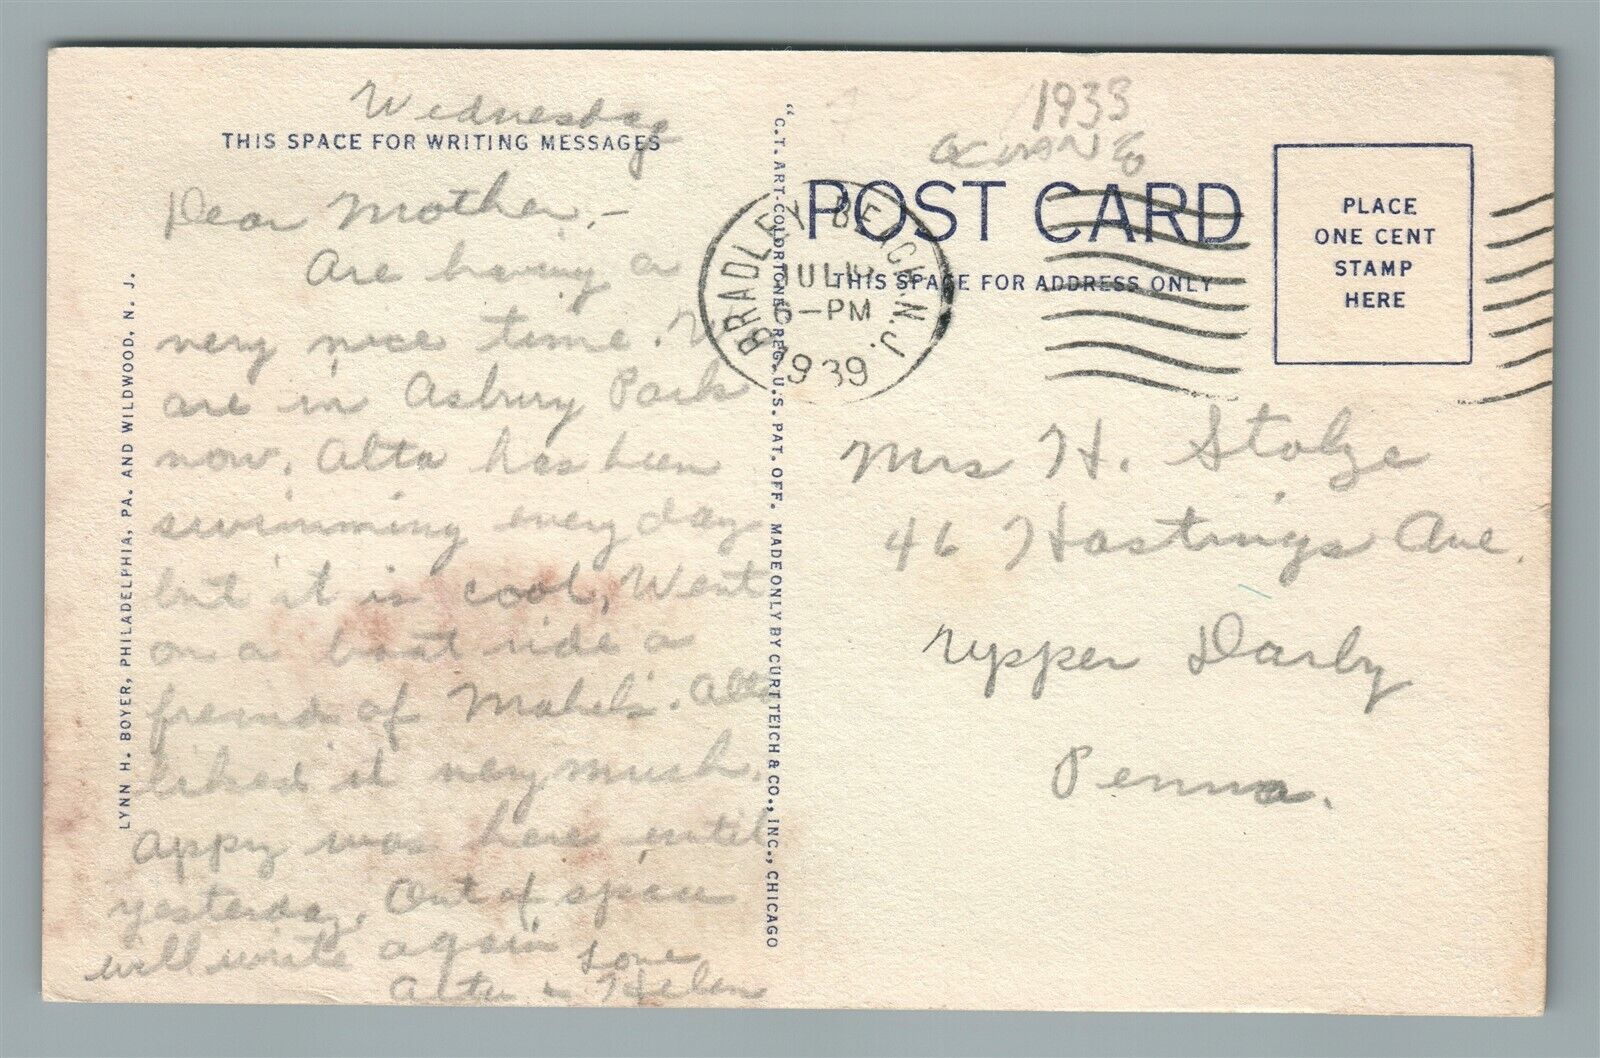 Wednesday
THIS SPACE FOR WRITING MESSAGES
Dear Mother,-
Are having a
very nice time. We
are in Asbury Park
now. Alta has been
swimming every day
but it is cool, Went
on a boat ride a
friend of Mabel's. Alta
liked it very much.
Appy was here until
yesterday. Out of space
will write again
Love
Alta & Helen
LYNN H. BOYER, PHILADELPHIA, PA. AND WILDWOOD, N. J.
"C.T. ART-COLORTONE" REG. U.S. PAT. OFF. MADE ONLY BY CURT TEICH & CO., INC., CHICAGO
1933
OCEAN
POST CARD
THIS SPACE FOR ADDRESS ONLY
BRADLEY BEACH. N.J.
JUL
-PM
1939
PLACE
ONE CENT
STAMP
HERE
Mrs H. Stolze
46 Hastings Ave.
Upper Darby
Penna.